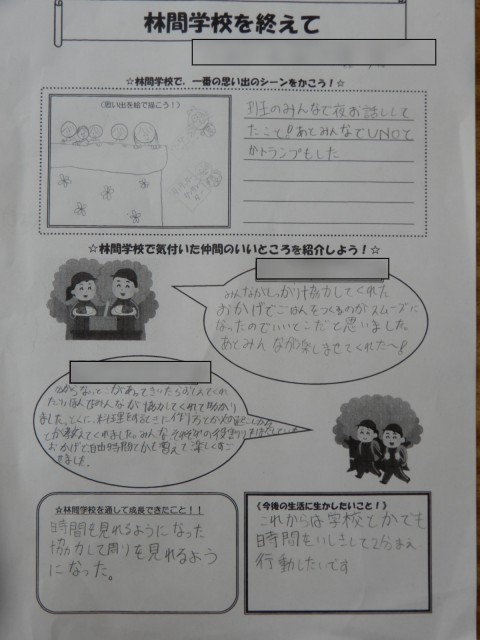 林間学校を終えて
☆林間学校で、一番の思い出のシーンをかこう！☆
〈思い出を絵で描こう！〉
班のみんなで夜お話しし
たこと!!あとみんなでUNOと
かトランプもした
☆林間学校で気付いた仲間のいいところを紹介しよう！☆
みんながしっかり協力してくれた
おかげでごはんをつくるのがスムーズに
なったのでいいとこだと思いました。
あとみんなが楽しませてくれた〜!
わからないとこがあってきいたらおしえてくれ
みんなが協力してくれて助かり
ました。とくに、料理をするときに作り方とか
とか教えてくれました。みんな、それぞれの役割り
おかげで自由時間とかも増えて楽しくすご
せました。
☆林間学校を通して成長できたこと！！
時間を見れるようになった
協力して周りを見れるよう
になった。
《今後の生活に生かしたいこと！》
これからは学校とかでも
時間をいしきして2分まえ
行動したいです